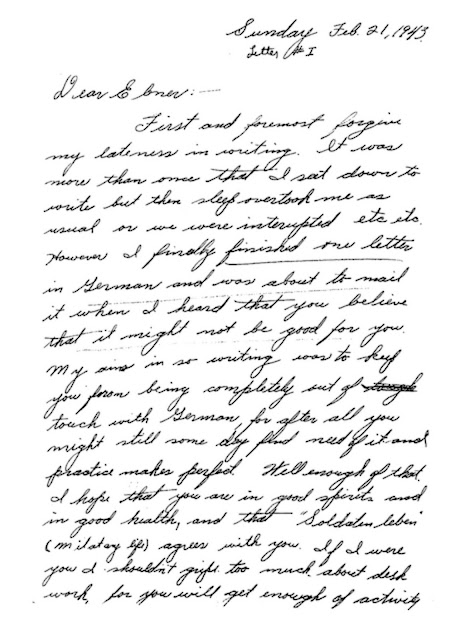 Sunday Feb. 21, 1943.
Letter # I
Dear Ebner:—
First and foremost forgive
my lateness in writing. It was
more than once that I sat down to
write but then sleep overtook me as
usual or we were interupted etc etc.
However I finally finished one letter
in German and was about to mail
it when I heard that you believe
that it might not be good for you.
My aim in so writing was to keep
you from being completely out of
touch with German, for after all you
might still some day find need of it and
practice makes perfect. Well enough of that.
I hope that you are in good spirits and
in good health, and that "Soldaten leben"
(military life) agrees with you. If I were
you I shouldn't gripe too much about desk
work, for you will get enough of activity